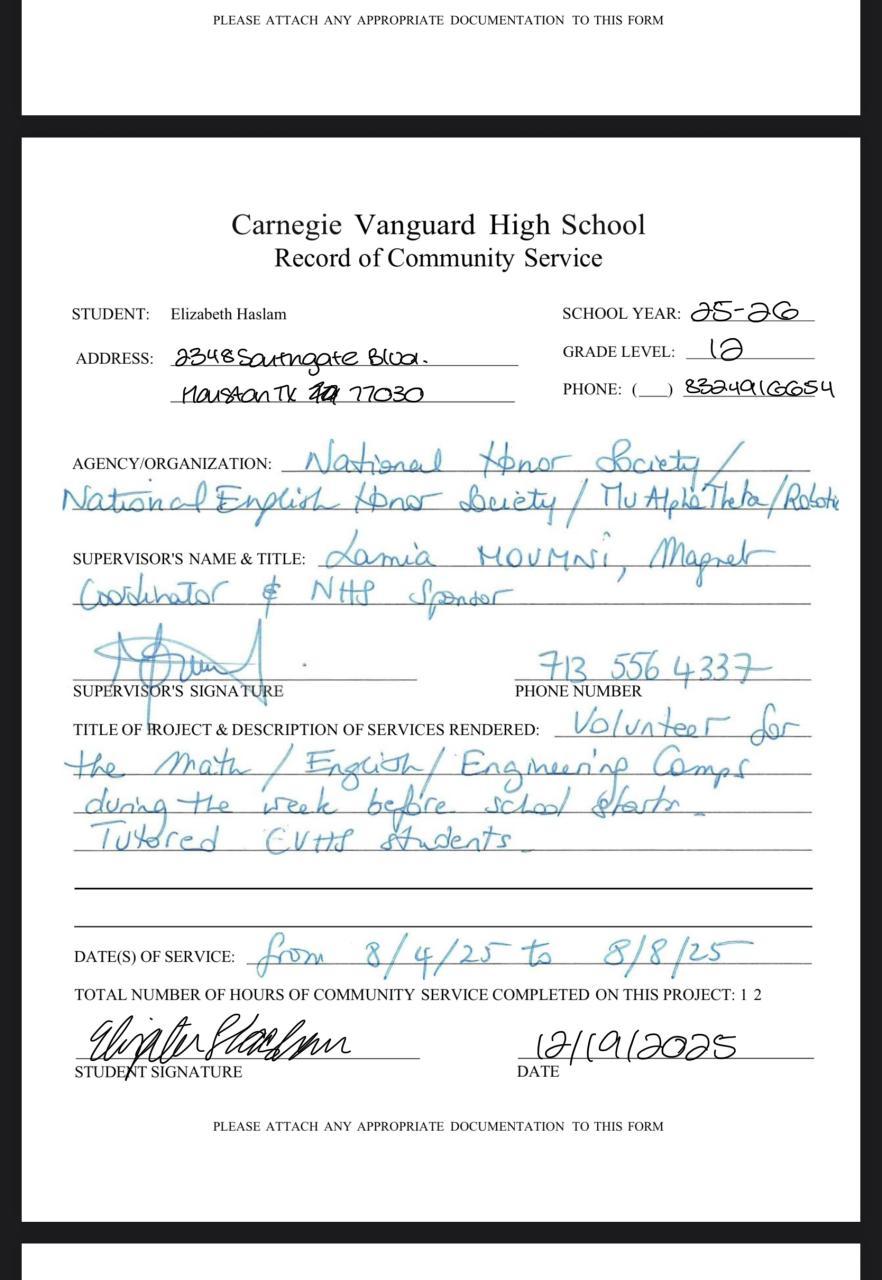 PLEASE ATTACH ANY APPROPRIATE DOCUMENTATION TO THIS FORM
Carnegie Vanguard High School
Record of Community Service
STUDENT: Elizabeth Haslam
SCHOOL YEAR: 25-26
ADDRESS: 2348 Southgate Blvd.
GRADE LEVEL: 12
Houston TX 77030
PHONE: (___) 8324916654
AGENCY/ORGANIZATION: National Honor Society/
National English Honor Society / Mu Alpha Theta / Robotic
SUPERVISOR'S NAME & TITLE: Lamia MOUMNI, Magnet
Coordinator & NHS Sponsor
713 556 4337
SUPERVISOR'S SIGNATURE
PHONE NUMBER
TITLE OF PROJECT & DESCRIPTION OF SERVICES RENDERED: Volunteer for
the Math / English / Engineering Camps
during the week before school starts.
Tutored CVHS students.
DATE(S) OF SERVICE: from 8/4/25 to 8/8/25
TOTAL NUMBER OF HOURS OF COMMUNITY SERVICE COMPLETED ON THIS PROJECT: 1 2
12/19/2025
STUDENT SIGNATURE
DATE
PLEASE ATTACH ANY APPROPRIATE DOCUMENTATION TO THIS FORM